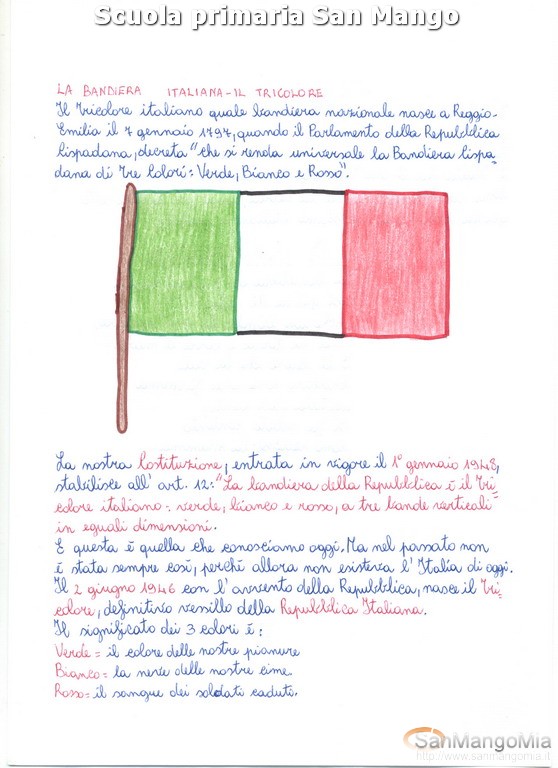 Scuola primaria San Mango
LA BANDIERA ITALIANA - IL TRICOLORE
Il Tricolore italiano quale bandiera nazionale nasce a Reggio-
Emilia il 7 gennaio 1797, quando il Parlamento della Repubblica
Cispadana, decreta "che si renda universale la Bandiera Cispa-
dana di Tre Colori: Verde, Bianco e Rosso".
La nostra Costituzione, entrata in vigore il 1° gennaio 1948,
stabilisce all'art. 12: "La bandiera della Repubblica è il Tri-
colore italiano: verde, bianco e rosso, a tre bande verticali
in eguali dimensioni.
E questa è quella che conosciamo oggi. Ma nel passato non
è stata sempre così, perché allora non esisteva l'Italia di oggi.
Il 2 giugno 1946 con l'avvento della Repubblica, nasce il Tri-
colore, definitivo vessillo della Repubblica Italiana.
Il significato dei 3 colori è:
Verde = il colore delle nostre pianure
Bianco = la neve delle nostre cime
Rosso = il sangue dei soldati caduti.
SanMangoMia
http://www.sanmangomia.it